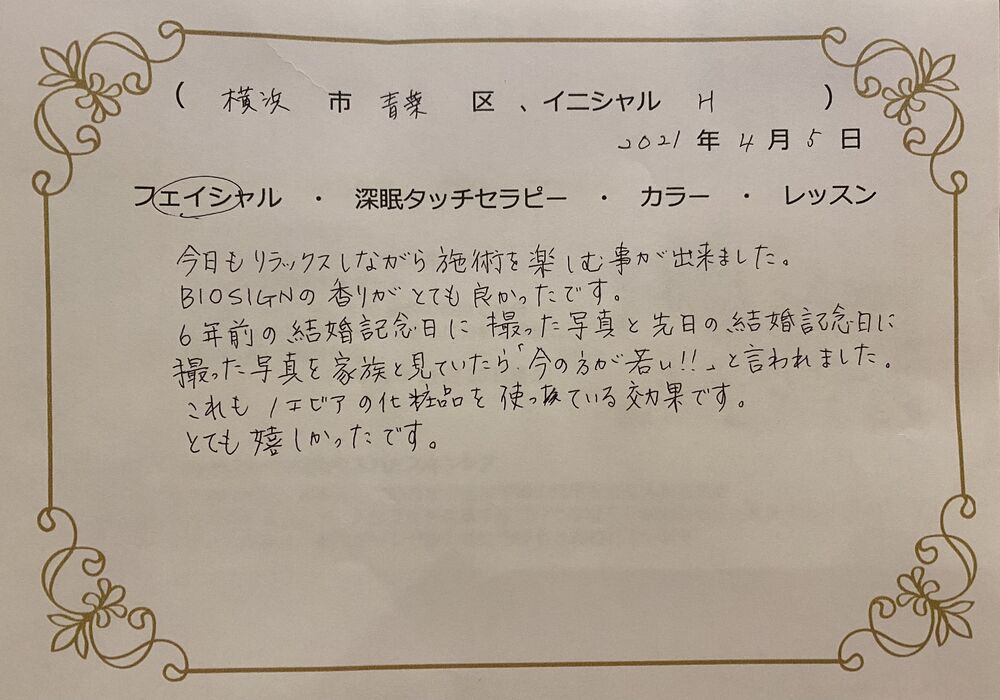 ( 横浜 市 青葉 区 、イニシャル H )
2021 年 4 月 5 日
フェイシャル ・ 深眠タッチセラピー ・ カラー ・ レッスン
今日もリラックスしながら施術を楽しむ事が出来ました。
BIOSIGNの香りがとても良かったです。
6年前の結婚記念日に撮った写真と先日の結婚記念日に
撮った写真を家族と見ていたら「今の方が若い!!」と言われました。
これもノエビアの化粧品を使っている効果です。
とても嬉しかったです。